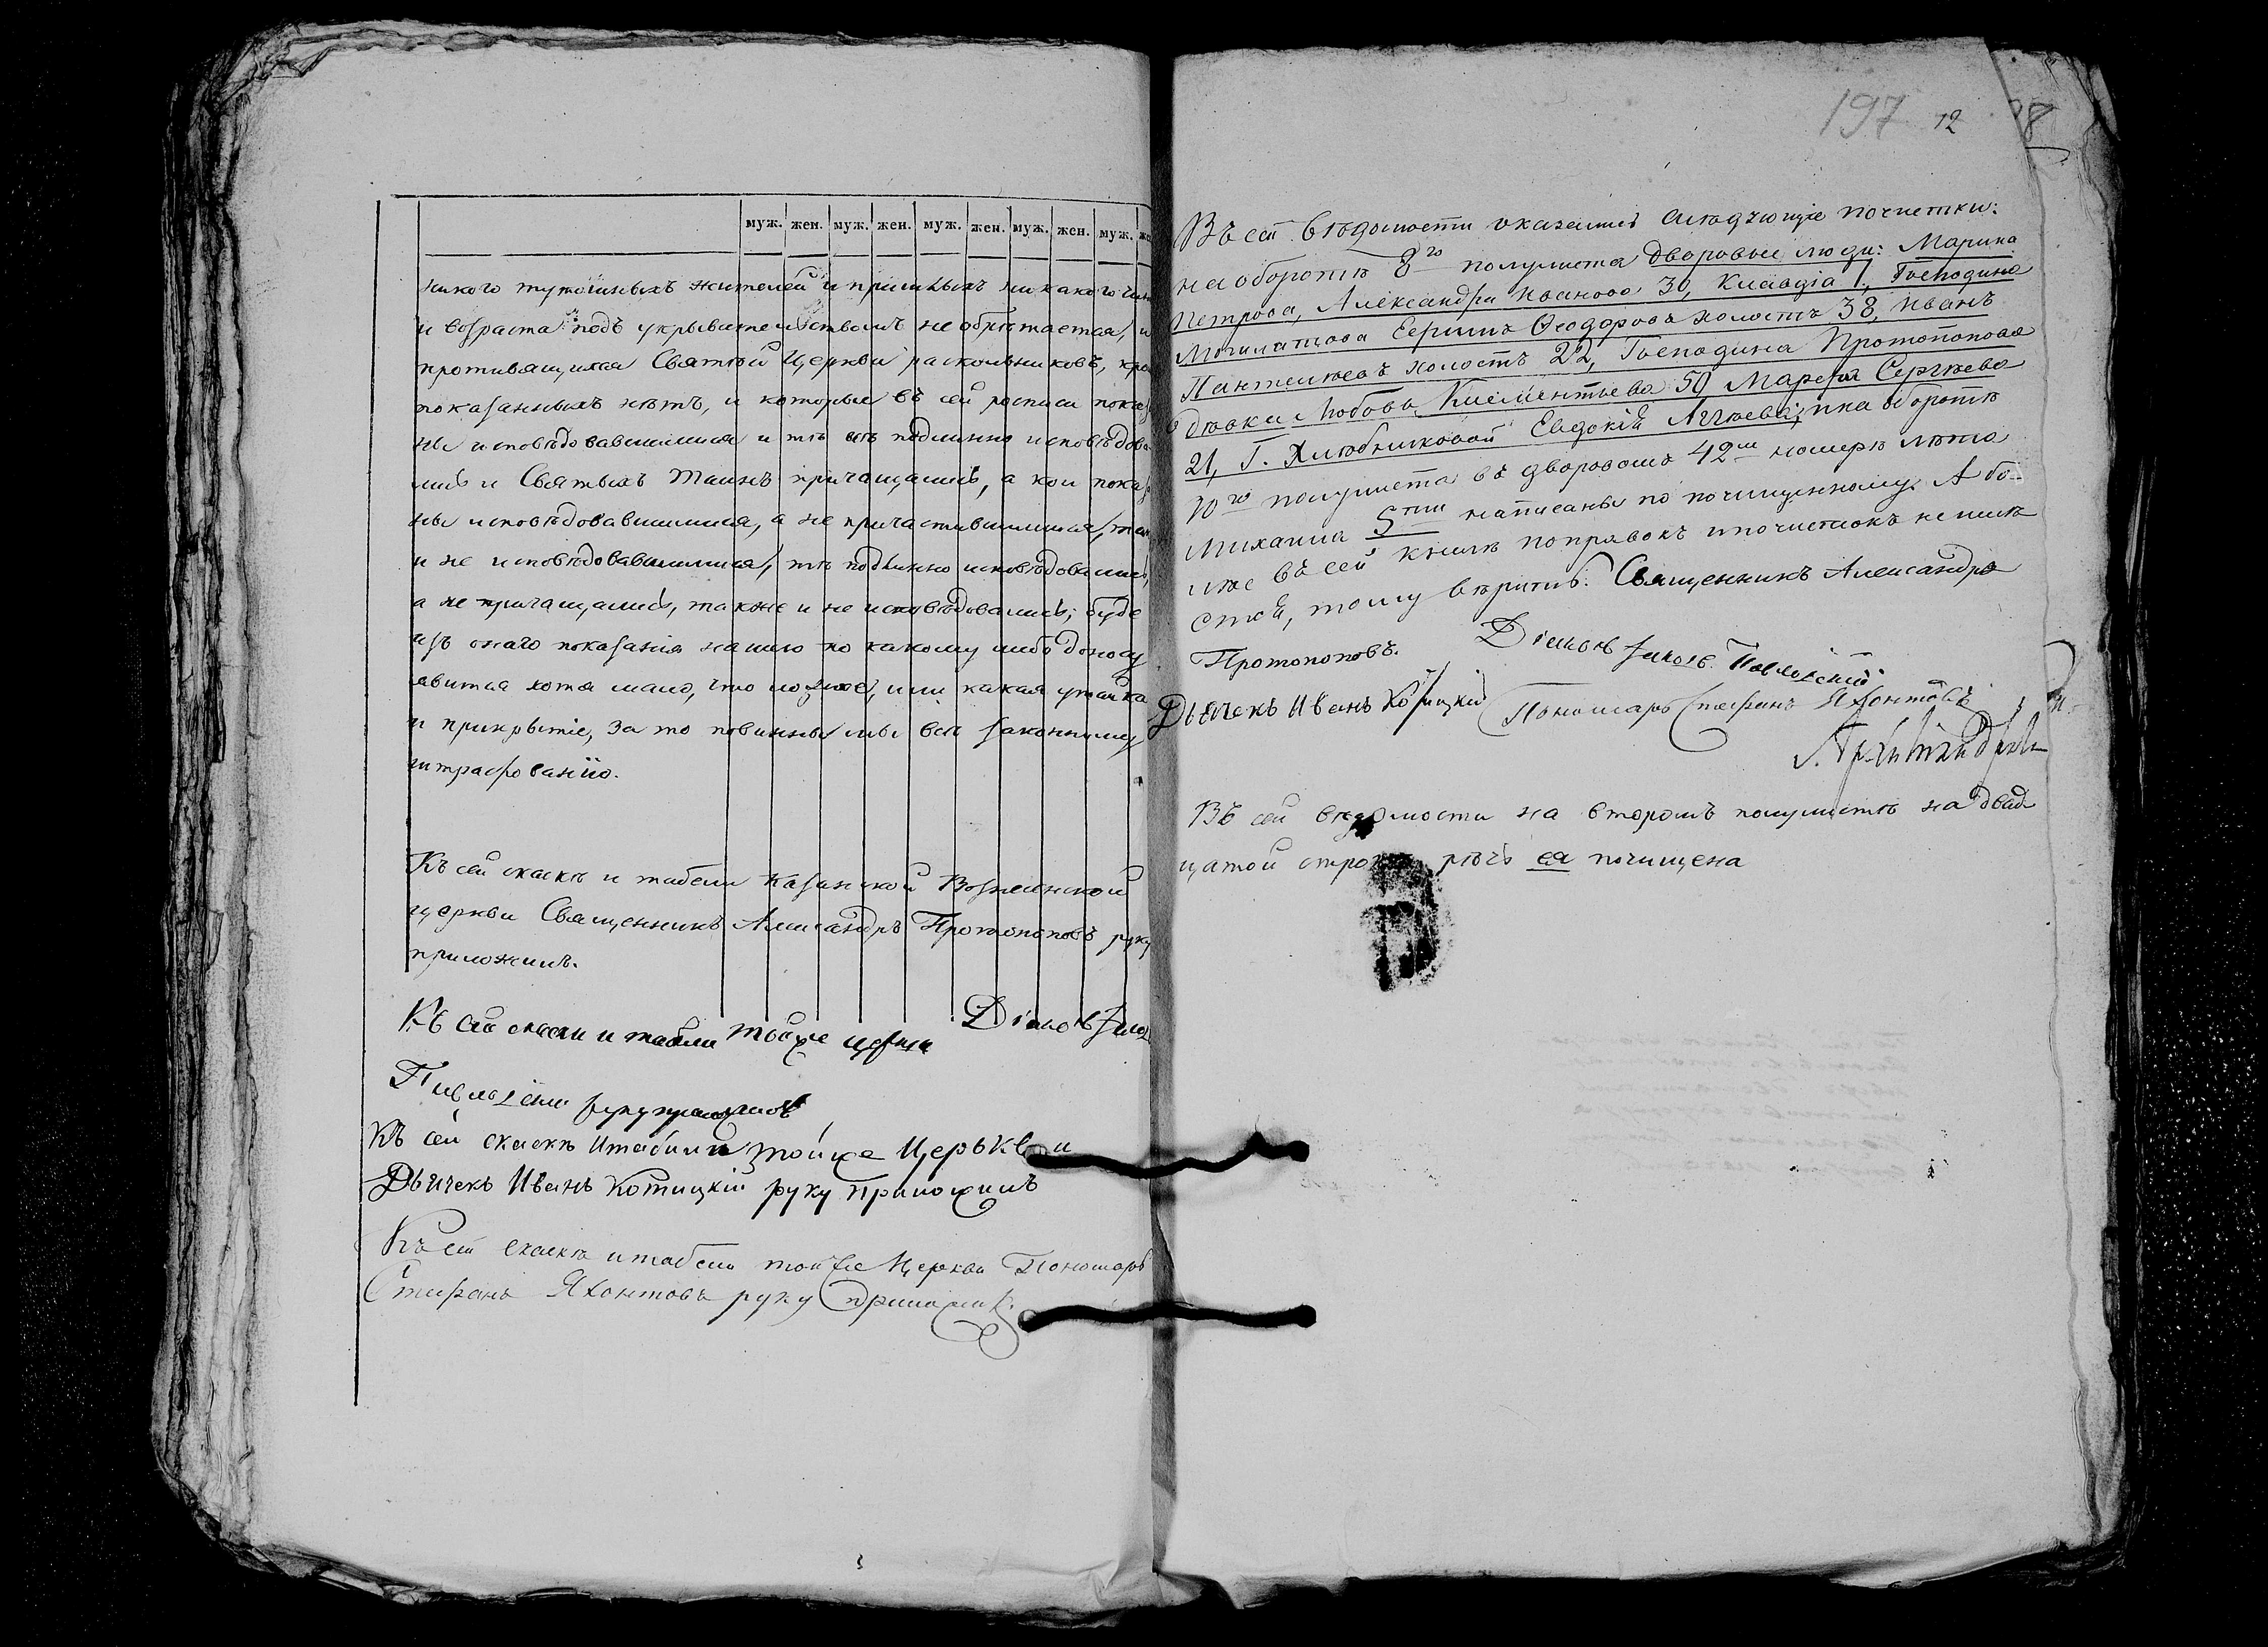 муж. жен. муж. жен. муж. жен. муж. жен. муж.
никого тутошныхъ жителей и пришлыхъ никакого чина
и возраста подъ укрывательствомъ не обрѣтается, и
противящихся Святѣй Церкви раскольниковъ, кро
показанныхъ нѣтъ, и которые въ сей росписи показа
ны исповѣдовавшимися и тѣ подлинно исповѣдова
лись и Святыхъ Таинъ причащались, а кои показа
ны исповѣдовавшимися, а не причастившимися, так
и не исповѣдовавшимися, тѣ подлинно исповѣдовались,
а не причащались, также и не исповѣдовались; буде
изъ онаго показанія нашего по какому либо доносу
явится хотя мало, что ложное, или какая утайка
и прикрытіе, за то повинны мы все законному
штрафованію.
Къ сей скаскѣ и табели Казанской Вознесенской
церкви Священникъ Александръ Протопоповъ руку
приложилъ.
Къ сей скаски и табели тойже церкви Діаконъ
руку приложилъ
Къ сей скаскѣ и табили тойже Церькви
Дьячекъ Иванъ Котицкій руку приложилъ
Къ сей скаскѣ и табели тойже Церкви Пономарь
Стефанъ Яхонтовъ руку приложилъ.
197 12
Въ сей вѣдомости оказались слѣдующіе почистки:
на оборотѣ 8го полулиста дворовые люди: Марина
Петрова, Александра Иванова 30, Клавдія 1, Господина
Ѳеодоровъ холостъ 38, Иванъ
Пантелѣевъ холостъ 22, Господина Протопопова
дѣвки Любовь Климентьева 50 Марѳа Сергѣева
21, Г. Хлюбниковой Евдокія Аггѣева; и на оборотѣ
10го полулиста въ дворовомъ 42мъ номерѣ лѣта
Михаила 5ти написаны по почищенному. А бо
лѣе въ сей книгѣ поправокъ и почистокъ не имѣ
ется, въ томъ вѣримъ. Священникъ Александръ
Протопоповъ. Діаконъ
Дьячекъ Иванъ Котицкій Пономарь Стефанъ Яхонтовъ
Въ сей вѣдомости на второмъ полулистѣ на двад
цатой строкѣ рѣчь ея почищена